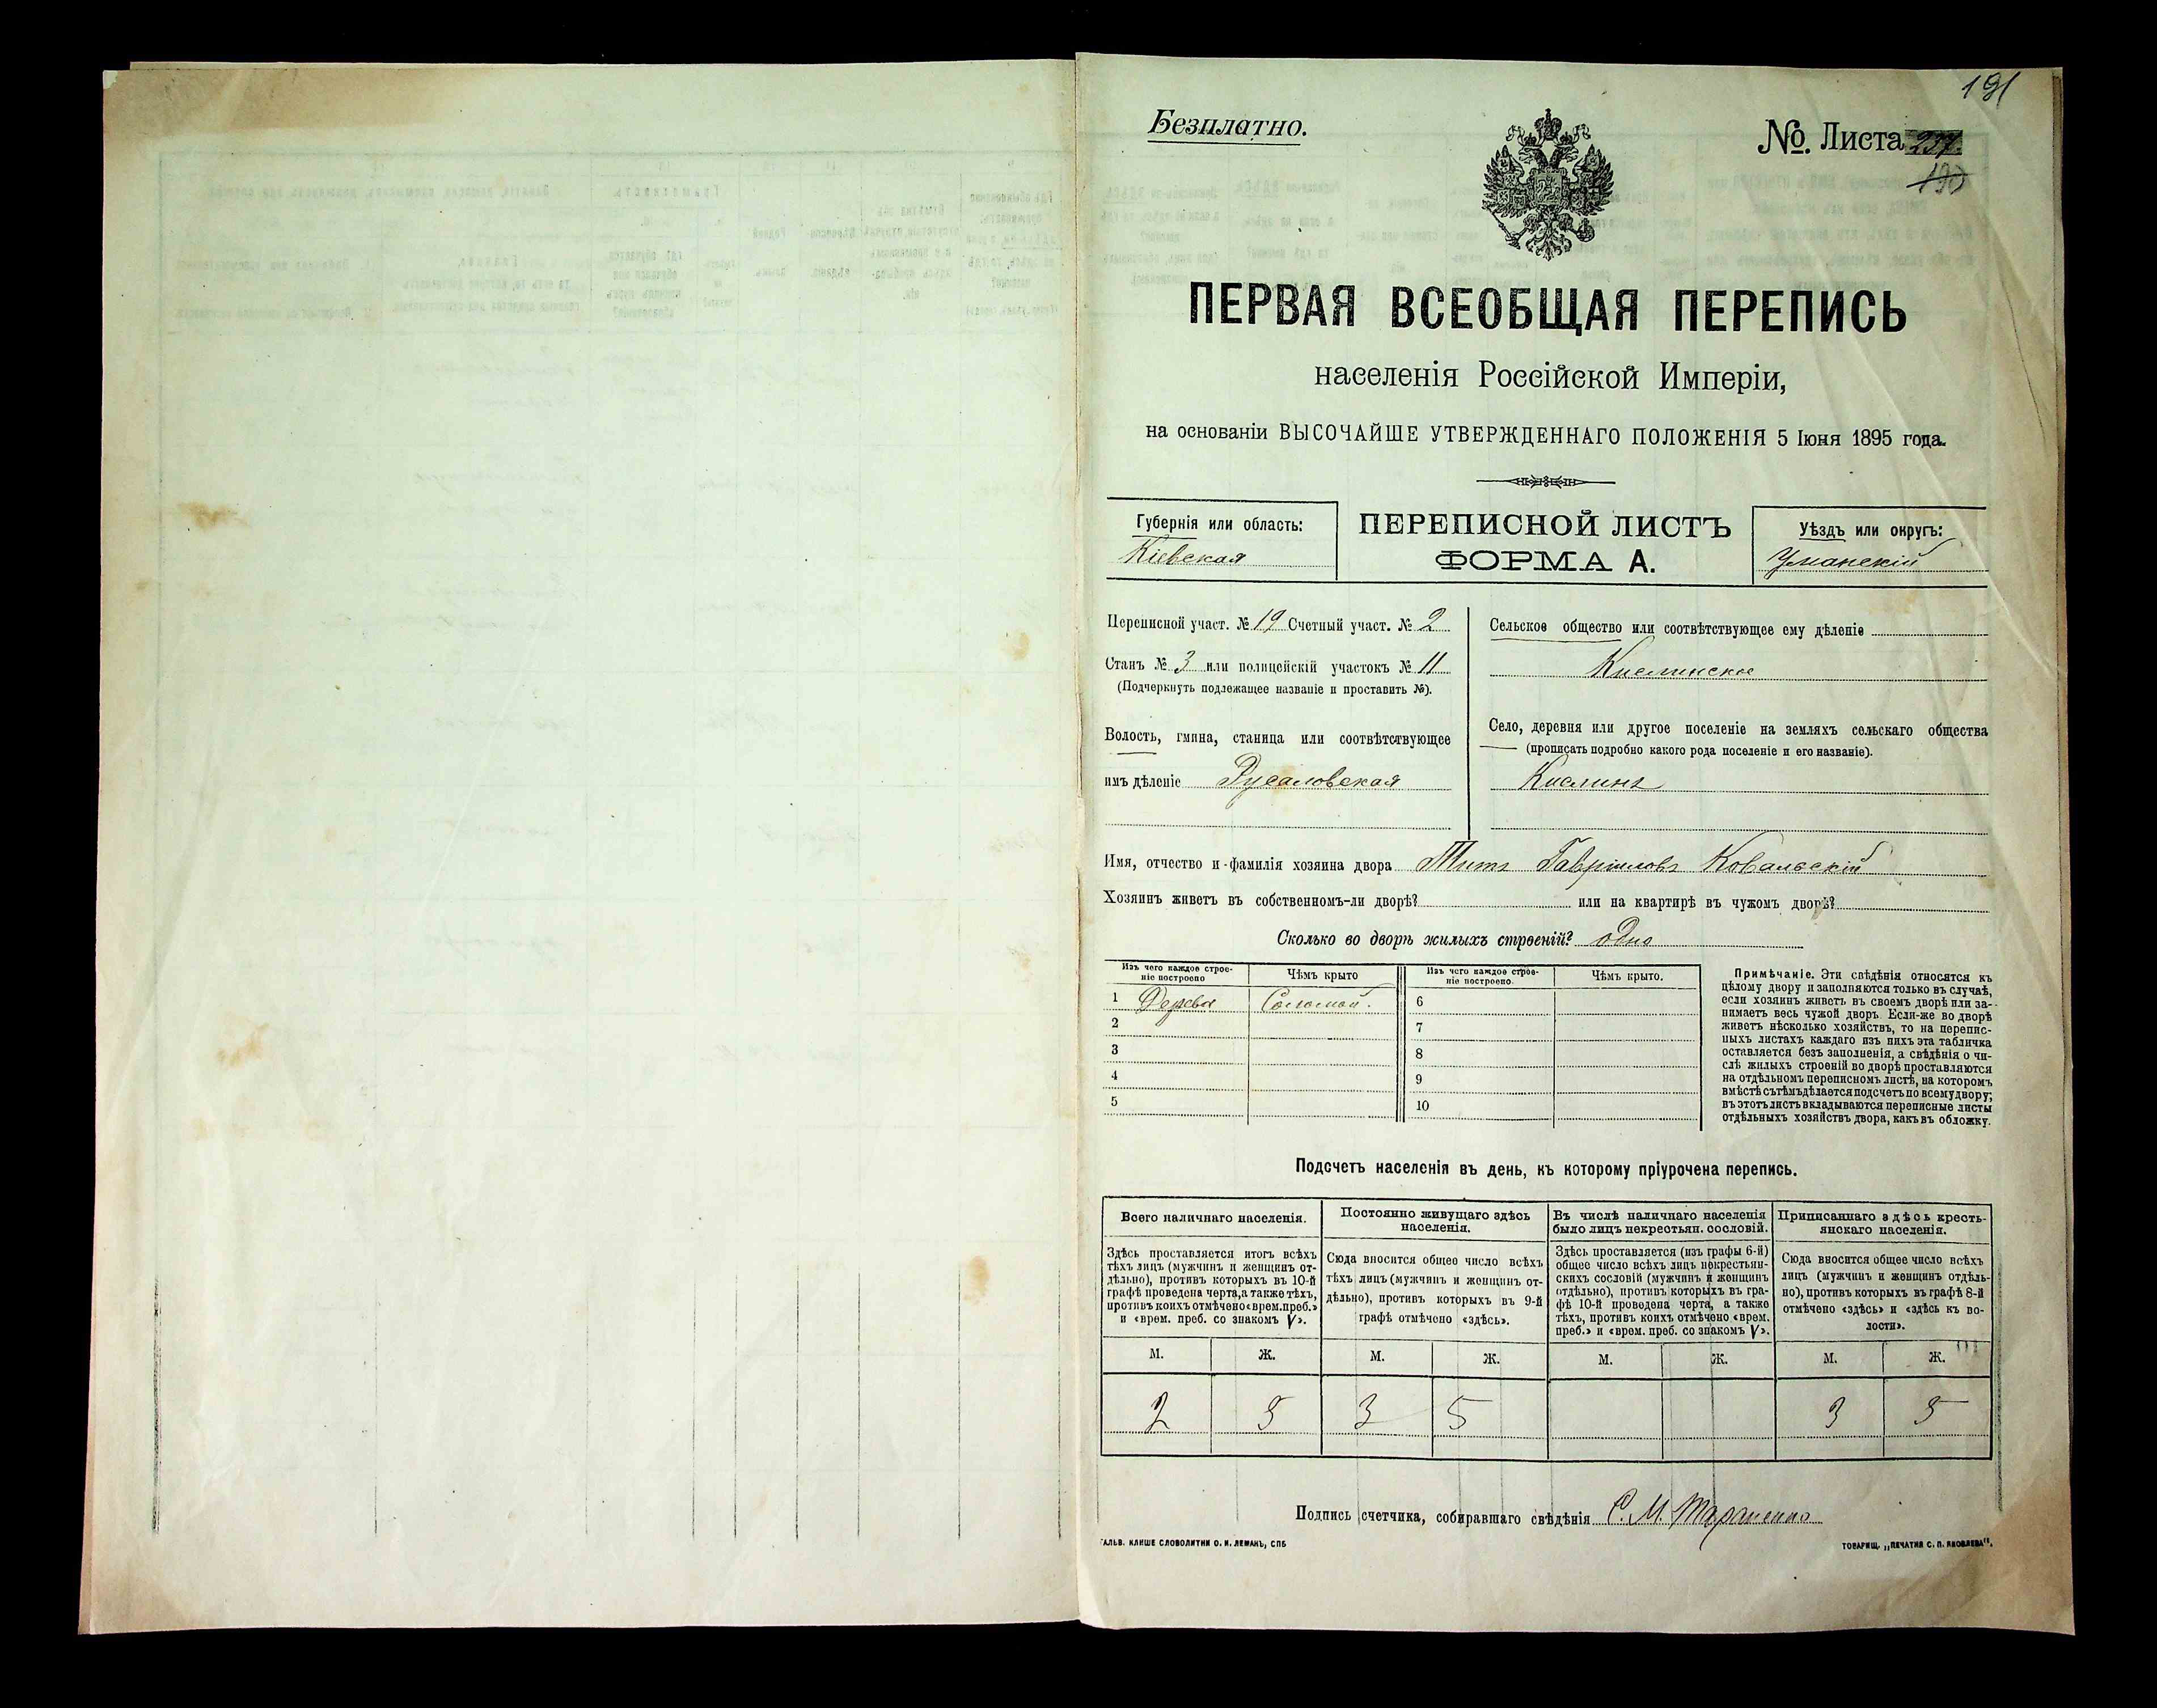 191
Безплатно.
№. Листа 237.
190
ПЕРВАЯ ВСЕОБЩАЯ ПЕРЕПИСЬ
населенія Россійской Имперіи,
на основаніи ВЫСОЧАЙШЕ УТВЕРЖДЕННАГО ПОЛОЖЕНІЯ 5 Іюня 1895 года.
Губернія или область:
Кіевская
ПЕРЕПИСНОЙ ЛИСТЪ
ФОРМА А.
Уѣздъ или округъ:
Уманскій
Переписной участ. № 19 Счетный участ. № 2
Станъ № 3 или полицейскій участокъ № 11
(Подчеркнуть подлежащее названіе и проставить №).
Волость, гмина, станица или соотвѣтствующее
имъ дѣленіе Русаловская
Сельское общество или соотвѣтствующее ему дѣленіе
Кислинское
Село, деревня или другое поселеніе на земляхъ сельскаго общества
(прописать подробно какого рода поселеніе и его названіе).
Кислинъ
Имя, отчество и фамилія хозяина двора Титъ Гавріиловъ Ковальскій
Хозяинъ живетъ въ собственномъ-ли дворѣ? или на квартирѣ въ чужомъ дворѣ?
Сколько во дворѣ жилыхъ строеній? одно
Изъ чего каждое строе-
ніе построено
Чѣмъ крыто
Изъ чего каждое строе-
ніе построено.
Чѣмъ крыто.
1 Дерева Соломой. 6
2 7
3 8
4 9
5 10
Примѣчаніе. Эти свѣдѣнія относятся къ
цѣлому двору и заполняются только въ случаѣ,
если хозяинъ живетъ въ своемъ дворѣ или за-
нимаетъ весь чужой дворъ. Если-же во дворѣ
живетъ нѣсколько хозяйствъ, то на перепис-
ныхъ листахъ каждаго изъ нихъ эта табличка
оставляется безъ заполненія, а свѣдѣнія о чи-
слѣ жилыхъ строеній во дворѣ проставляются
на отдѣльномъ переписномъ листѣ, на которомъ
вмѣстѣ съ тѣмъ дѣлается подсчетъ по всему двору;
въ этотъ листъ вкладываются переписные листы
отдѣльныхъ хозяйствъ двора, какъ въ обложку.
Подсчетъ населенія въ день, къ которому пріурочена перепись.
Всего наличнаго населенія.
Здѣсь проставляется итогъ всѣхъ
тѣхъ лицъ (мужчинъ и женщинъ от-
дѣльно), противъ которыхъ въ 10-й
графѣ проведена черта, а также тѣхъ,
противъ коихъ отмѣчено «врем. преб.»
и «врем. преб. со знакомъ V».
Постоянно живущаго здѣсь
населенія.
Сюда вносится общее число всѣхъ
тѣхъ лицъ (мужчинъ и женщинъ от-
дѣльно), противъ которыхъ въ 9-й
графѣ отмѣчено «здѣсь».
Въ числѣ наличнаго населенія
было лицъ некрестьян. сословій.
Здѣсь проставляется (изъ графы 6-й)
общее число всѣхъ лицъ некрестьян-
скихъ сословій (мужчинъ и женщинъ
отдѣльно), противъ которыхъ въ гра-
фѣ 10-й проведена черта, а также
тѣхъ, противъ коихъ отмѣчено «врем.
преб.» и «врем. преб. со знакомъ V».
Приписаннаго здѣсь кресть-
янскаго населенія.
Сюда вносится общее число всѣхъ
лицъ (мужчинъ и женщинъ отдѣль-
но), противъ которыхъ въ графѣ 8-й
отмѣчено «здѣсь» и «здѣсь къ во-
лости».
М. Ж. М. Ж. М. Ж. М. Ж.
2 5 3 5 3 5
Подпись счетчика, собиравшаго свѣдѣнія С. М. Тараненко
ГАЛЬВ. КЛИШЕ СЛОВОЛИТНИ О. И. ЛЕМАНЪ, СПБ
ТОВАРИЩ. „ПЕЧАТНЯ С. П. ЯКОВЛЕВА".